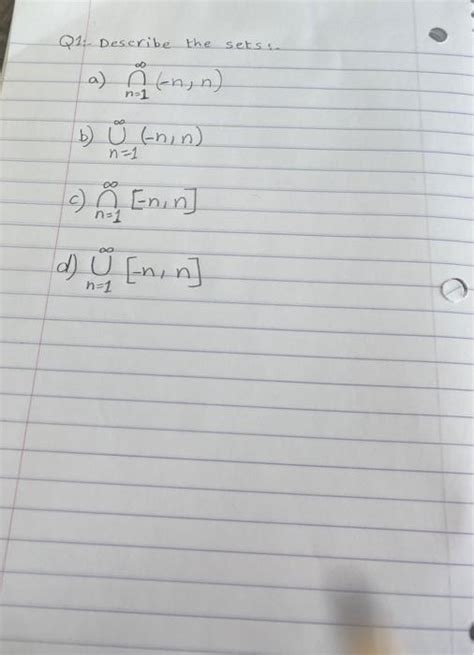 Q1:- Describe the sets:-
a) ∞⋂n=1 (-n, n)
b) ∞⋃n=1 (-n, n)
c) ∞⋂n=1 [-n, n]
d) ∞⋃n=1 [-n, n]